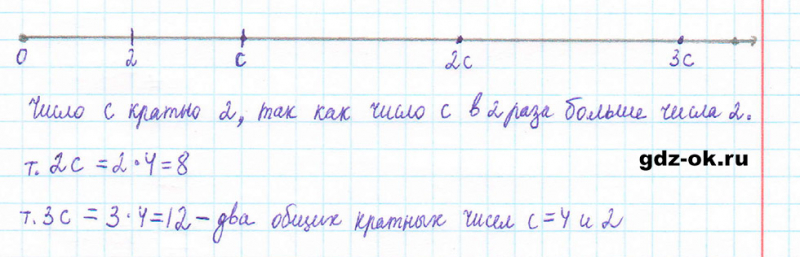 0 2 c 2c 3c
Число c кратно 2, так как число c в 2 раза больше числа 2.
т. 2c = 2 · 4 = 8
gdz-ok.ru
т. 3c = 3 · 4 = 12 – два общих кратных чисел c = 4 и 2